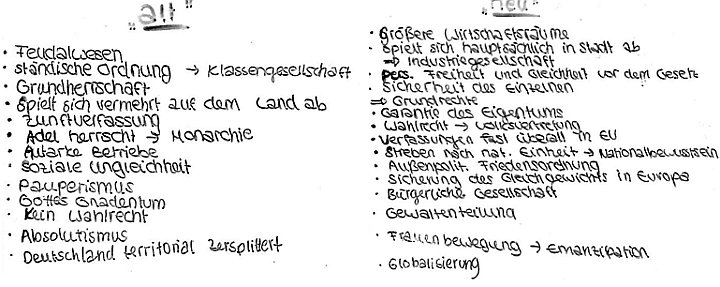 "alt"
· Feudalwesen
· ständische Ordnung → Klassengesellschaft
· Grundherrschaft
· Spielt sich vermehrt auf dem Land ab
· Zunftverfassung
· Adel herrscht → Monarchie
· Autarke Betriebe
· soziale Ungleichheit
· Pauperismus
· Gottes Gnadentum
· Kein Wahlrecht
· Absolutismus
· Deutschland territorial zersplittert
"neu"
· Größere Wirtschaftsräume
· Spielt sich hauptsächlich in Stadt ab
⇒ Industriegesellschaft
· pers. Freiheit und Gleichheit vor dem Gesetz
· Sicherheit des Einzelnen
⇒ Grundrechte
· Garantie des Eigentums
· Wahlrecht → Volksvertretung
· Verfassungen fast überall in EU
· Streben nach nat. Einheit → Nationalbewustsein
· Außenpolit. Friedensordnung
· Sicherung des Gleichgewichts in Europa
· Bürgerliche Gesellschaft
· Gewaltenteilung
· Frauenbewegung → Emanzipation
· Globalisierung